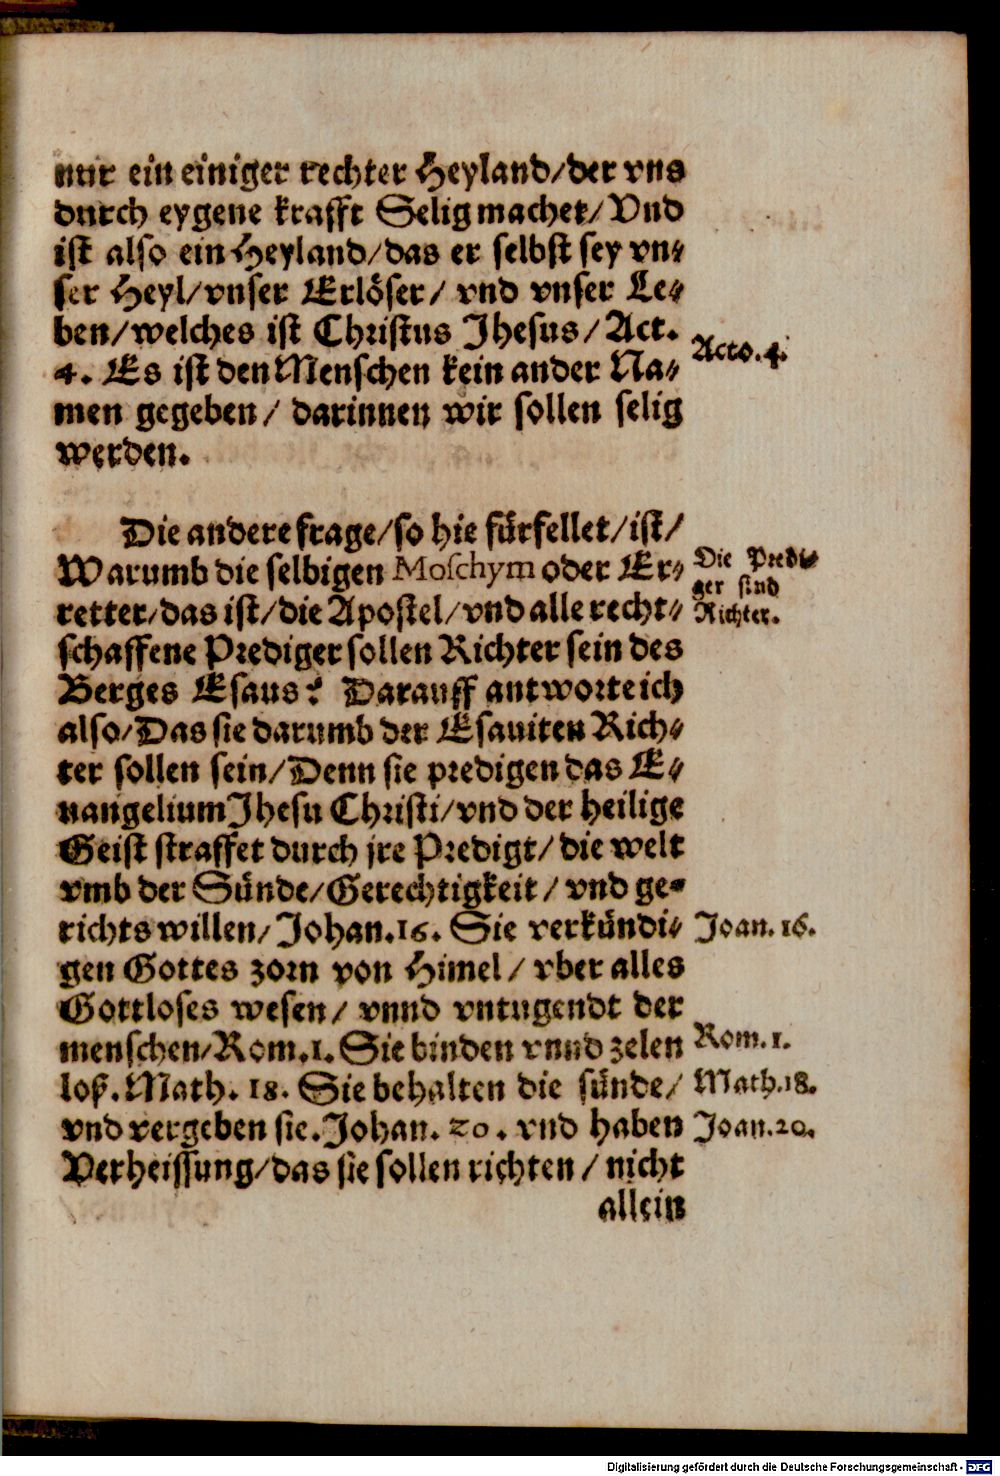 nur ein einiger rechter Heyland/der vns
durch eygene krafft Selig machet/Vnd
ist also ein Heyland/das er selbst sey vn⸗
ser Heyl/vnser Erlöser/ vnd vnser Le⸗
ben/welches ist Christus Jhesus/Act.
Acto.4.
4. Es ist den Menschen kein ander Na⸗
men gegeben/ darinnen wir sollen selig
werden.
Die andere frage/so hie fürfellet/ist/
Warumb die selbigen Moschym oder Er⸗
Die Predi⸗
ger sind
Richter.
retter/das ist/die Apostel/vnd alle recht⸗
schaffene Prediger sollen Richter sein des
Berges Esaus? Darauff antworte ich
also/Das sie darumb der Esauiten Rich⸗
ter sollen sein/Denn sie predigen das E⸗
uangelium Jhesu Christi/vnd der heilige
Geist straffet durch jre Predigt/die welt
vmb der Sünde/Gerechtigkeit/vnd ge⸗
richts willen/Johan.16. Sie verkündi⸗
Joan.16.
gen Gottes zorn von Himel/vber alles
Gottloses wesen/ vnnd vntugendt der
menschen/Rom.1. Sie binden vnnd zelen
Rom.1.
loß.Math. 18. Sie behalten die sünde/
Math.18.
vnd vergeben sie.Johan. 20. vnd haben
Joan.20.
Verheissung/das sie sollen richten/nicht
allein
Digitalisierung gefördert durch die Deutsche Forschungsgemeinschaft - DFG